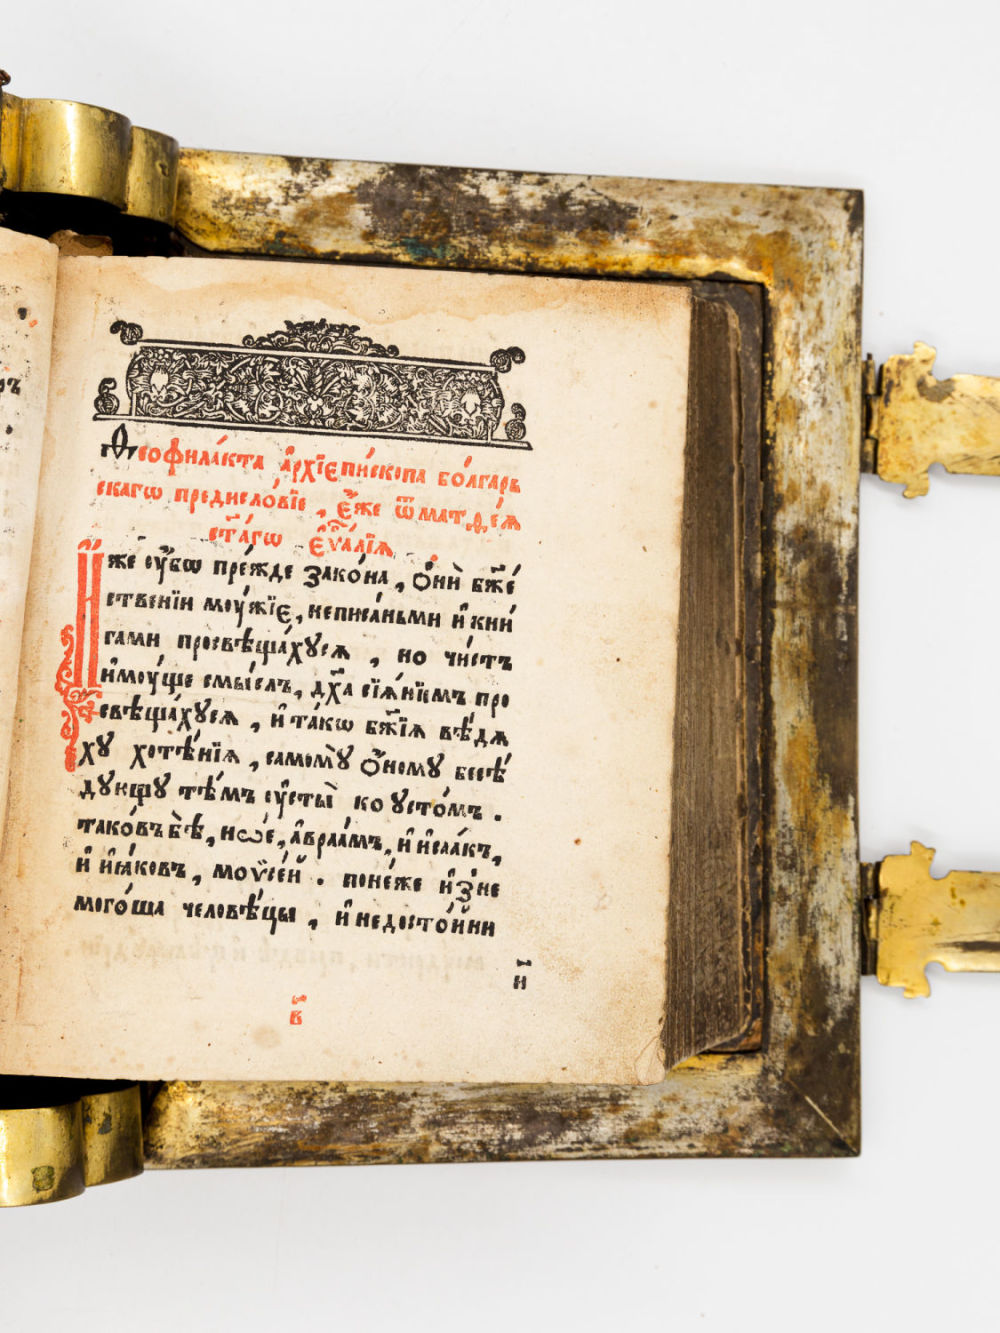 Ѳеофила́кта а҆рхїєпи́скопа бо́лгарь
скагѡ предисло́вїе , є҆́же ѿ матѳе́ѧ
ст҃а́гѡ є҆ѵⷢ҇а́лїѧ
И҆̀же ᲂу҆́бѡ пре́жде зако́на , ѻ҆́ни бж҃е́
ственїи мᲂу́жїє , неписа́ньми и҆ кни́
гами просвѣща́хꙋсѧ , но чи́стъ
и҆мᲂу́ще смы́слъ , дх҃а сїѧ́нїимъ про
свѣща́хꙋсѧ , и҆ та́кѡ бж҃їѧ вѣ́дѧ
хꙋ хотѣ́нїѧ , самомꙋ̀ ѻ҆́номꙋ бесѣ́
дꙋющꙋ тѣ́мъ ᲂу҆сты̀ ко ᲂу҆сто́мъ .
тако́въ бѣ̀ , нѡ́е , а҆враа́мъ , и҆ и҆саа́къ ,
и҆ и҆ꙗ́ковъ , мᲂѵ̈се́й . поне́же и҆знe
мого́ша человѣ́цы , и҆ недосто́йни
н
в҃